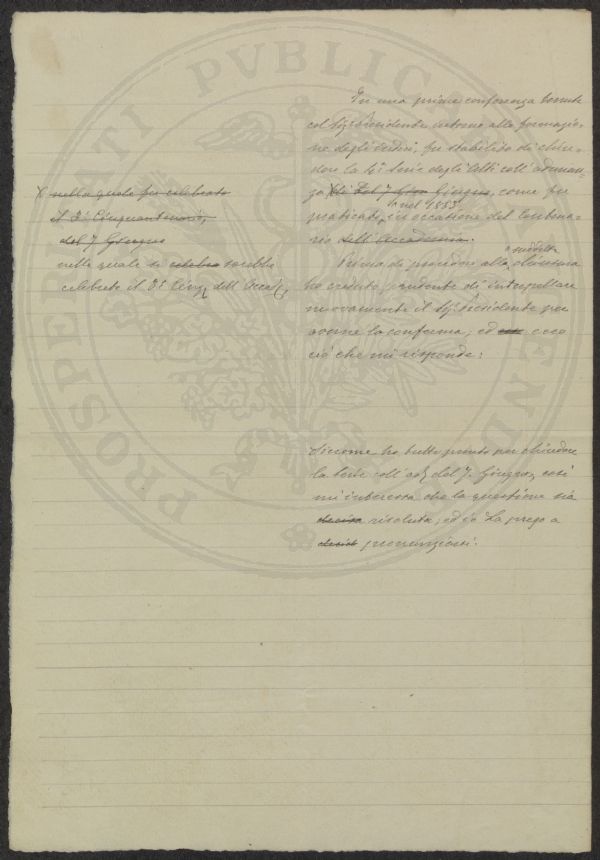 PROSPERITATI PVBLICAE
In una prima conferenza tenuta
col Sig. Presidente intorno alla formazio-
ne degli indici, fu stabilito di chiu-
dere la 4ª Serie degli Atti coll'adunan-
za del 7 Giugno, come fu
nel 1853
praticato, in occasione del Centena-
rio dell'Accademia.
X nella quale fu celebrato
il 3° Cinquantenario,
del 7 Giugno
nella quale si celebra sarebbe
celebrato il 3° Cinq. dell'Accad.
suddetta
Prima di procedere alla chiusura
ho creduto prudente di interpellare
nuovamente il Sig. Presidente per
averne la conferma, ed ecco
ciò che mi risponde:
Siccome ho tutto pronto per chiudere
la Serie coll'ad. del 7 Giugno, così
mi interessa che la questione sia
decisa risoluta, ed io La prego a
pronunziarsi.